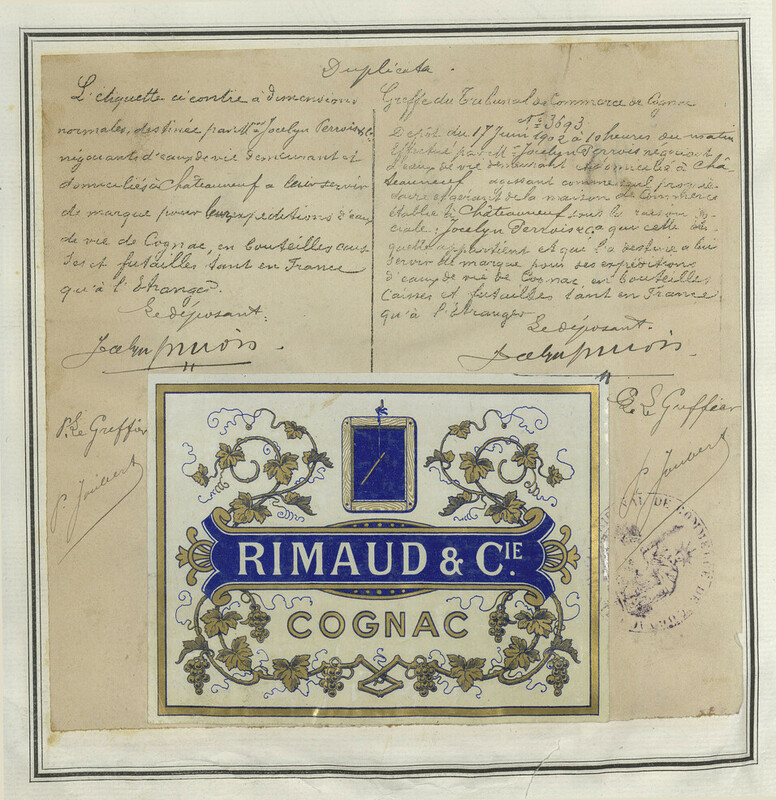 Duplicata.
L'étiquette ci contre à dimensions
normales, destinée par MM Jocelyn Perrois & Cie
négociants d'eaux de vie demeurant et
domiciliés à Châteauneuf a leur servir
de marque pour leurs expéditions d'eaux
de vie de Cognac, en bouteilles cais
ses et futailles tant en France
qu'à l'Etranger.
Le déposant:
P. Le Greffier
P. Joubert
Greffe du Tribunal de Commerce de Cognac
No 3693
Dépôt du 17 Juin 1902 à 10 heures du matin
Effectué par M. Jocelyn Perrois négociant
d'eaux de vie demeurant et domicilié à Châ-
teauneuf agissant comme seul proprié-
taire et gérant de la maison de Commerce
établie à Châteauneuf sous la raison so-
ciale: Jocelyn Perrois & Ca que cette éti-
quette appartient et qu'il la destine à lui
servir de marque pour ses expéditions
d'eaux de vie de Cognac, en bouteilles
Caisses et futailles tant en France
qu'à l'Étranger
Le déposant.
Le Greffier
P. Joubert
RIMAUD & CIE.
COGNAC
DE COMMERCE DE